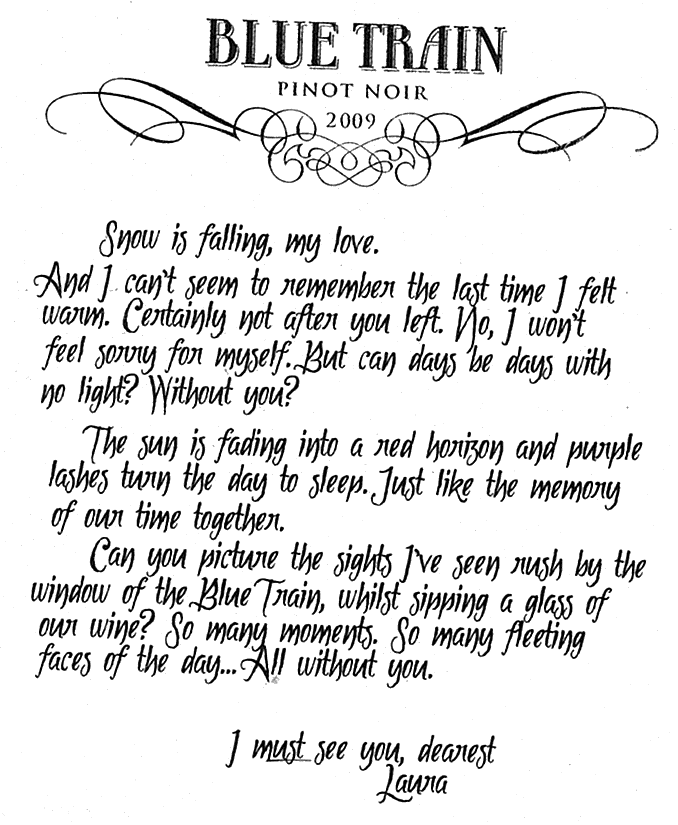 BLUE TRAIN
PINOT NOIR
2009
Snow is falling, my love.
And I can't seem to remember the last time I felt
warm. Certainly not after you left. No, I won't
feel sorry for myself. But can days be days with
no light? Without you?
The sun is fading into a red horizon and purple
lashes turn the day to sleep. Just like the memory
of our time together.
Can you picture the sights I've seen rush by the
window of the Blue Train, whilst sipping a glass of
our wine? So many moments. So many fleeting
faces of the day... All without you.
I must see you, dearest
Laura